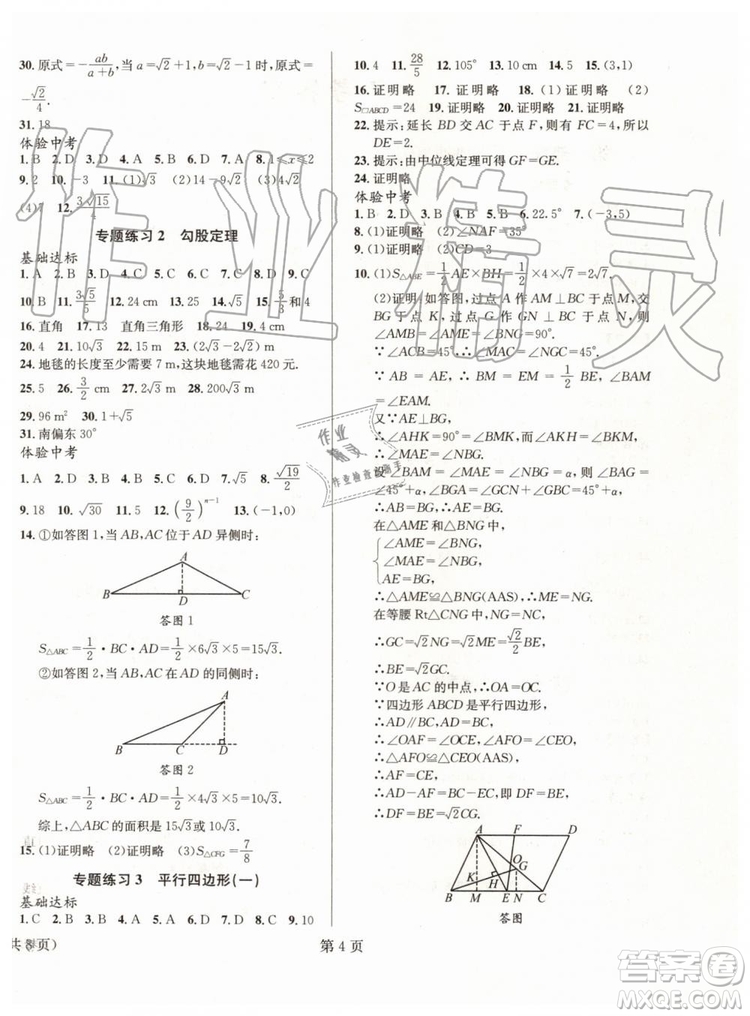 30. 原式=-ab/(a+b),当 a=√2+1,b=√2-1时,原式=
-√2/4.
31. 18
体验中考
1. B 2. D 3. D 4. A 5. B 6. D 7. A 8. 1≤x≤2
9. 2 10. 6 11. (1)√3 (2)2√3 (3)
(4)7 12. 3√15/4
专题练习 2 勾股定理
基础达标
1. A 2. D 3. A 4. C 5. A 6. D 7.
10. B 11. 3√5/5 12. 24 cm 13. 15. 和 4
16. 直角 17. 13 直角三角形 18. 24 19. 4 cm
20. 4 21. 22.
24. 地毯的长度至少需要 7 m,这块地毯需花 420 元.
25. 5 26. 3/2 cm 27. 2√3 m 28. 200√3 m
29. 96 m² 30. 1+√5
31. 南偏东 30°
体验中考
1. A 2. D 3. C 4. A 5. D 6. C 7. √5 8. √19/2
9. 18 10. √30 11. 5 12. (9/2)ⁿ⁻¹ 13. (-1,0)
14. ①如答图 1,当 AB、AC 位于 AD 异侧时:
A
B D C
答图 1
S△ABC=1/2·BC·AD=1/2×6√3×5=15√3.
②如答图 2,当 AB、AC 在 AD 的同侧时:
A
B C D
答图 2
S△ABC=1/2·BC·AD=1/2×4√3×5=10√3.
综上,△ABC 的面积是 15√3 或 10√3.
15. (1)证明略 (2)证明略 (3)S△CFG=7/8
专题练习 3 平行四边形(一)
基础达标
1. C 2. A 3. D 4. D 5. B 6. D 7. C 8. D 9. 10
10. 4 11. 28/5 12. 105° 13. 10 cm 14. 5 15. (3,1)
16. 证明略 17. 证明略 18. (1)证明略 (2)
S▱ABCD=24 19. 证明略 20. 证明略 21. 证明略
22. 提示:延长 BD 交 AC 于点 F,所以 FC=4,所以
DE=2.
23. 提示:由中位线定理可得 GF=GE.
24. 证明略
体验中考
1. B 2. D 3. B 4. D 5. B 6. 22.5° 7. (-3,5)
8. (1)证明略 (2)∠NAF=35°
9. (1)证明略 (2)CD=3
10. (1)S△ABE=1/2 AE×BH=1/2×4×√7=2√7.
(2)证明:如答图,过点 A 作 AM⊥BC 于点 M,交
BG 于点 K,过点 G 作 GN⊥BC 于点 N,则
∠AMB=∠AME=∠BNG=90°.
∵∠ACB=45°,∴∠MAC=∠NGC=45°.
∵AB=AE,∴BM=EM=1/2 BE,∠BAM=
∠EAM.
又∵AE⊥BG,
∴∠AHK=90°=∠BMK,而∠AKH=∠BKM,
∴∠MAE=∠NBG,设∠MAE=∠NBG=α,则∠BAG
=45°+α,∠BGA=∠GCN+∠GBC=45°+α,
∴AB=BG,∴AE=BG.
在△AME和△BNG 中,
∠AME=∠BNG,
∠MAE=∠NBG,
AE=BG,
∴△AME≌△BNG(AAS),∴ME=NG.
在等腰 Rt△CNG 中,NG=NC,
∴GC=√2NG=√2ME=√2/2 BE,
∴BE=√2GC.
∵O 是 AC 的中点,∴OA=OC.
∵四边形 ABCD 是平行四边形,
∴AD∥BC,AD=BC,
∴∠OAF=∠OCE,∠AFO=∠CEO,
∴△AFO≌△CEO(AAS),
∴AF=CE,
∴AD-AF=BC-EC,即 DF=BE,
∴DF=BE=√2CG.
A F D
O
H G
B M E N C
答图
共 8 页)
第 4 页
作业精灵
作业
精灵
作业检查小助手
答案圈
MXQE.COM